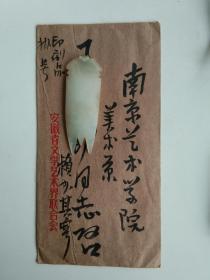 南京艺术学院
美术系
同志启
赖少其寄
安徽省文学艺术界联合会
印刷品
挂号